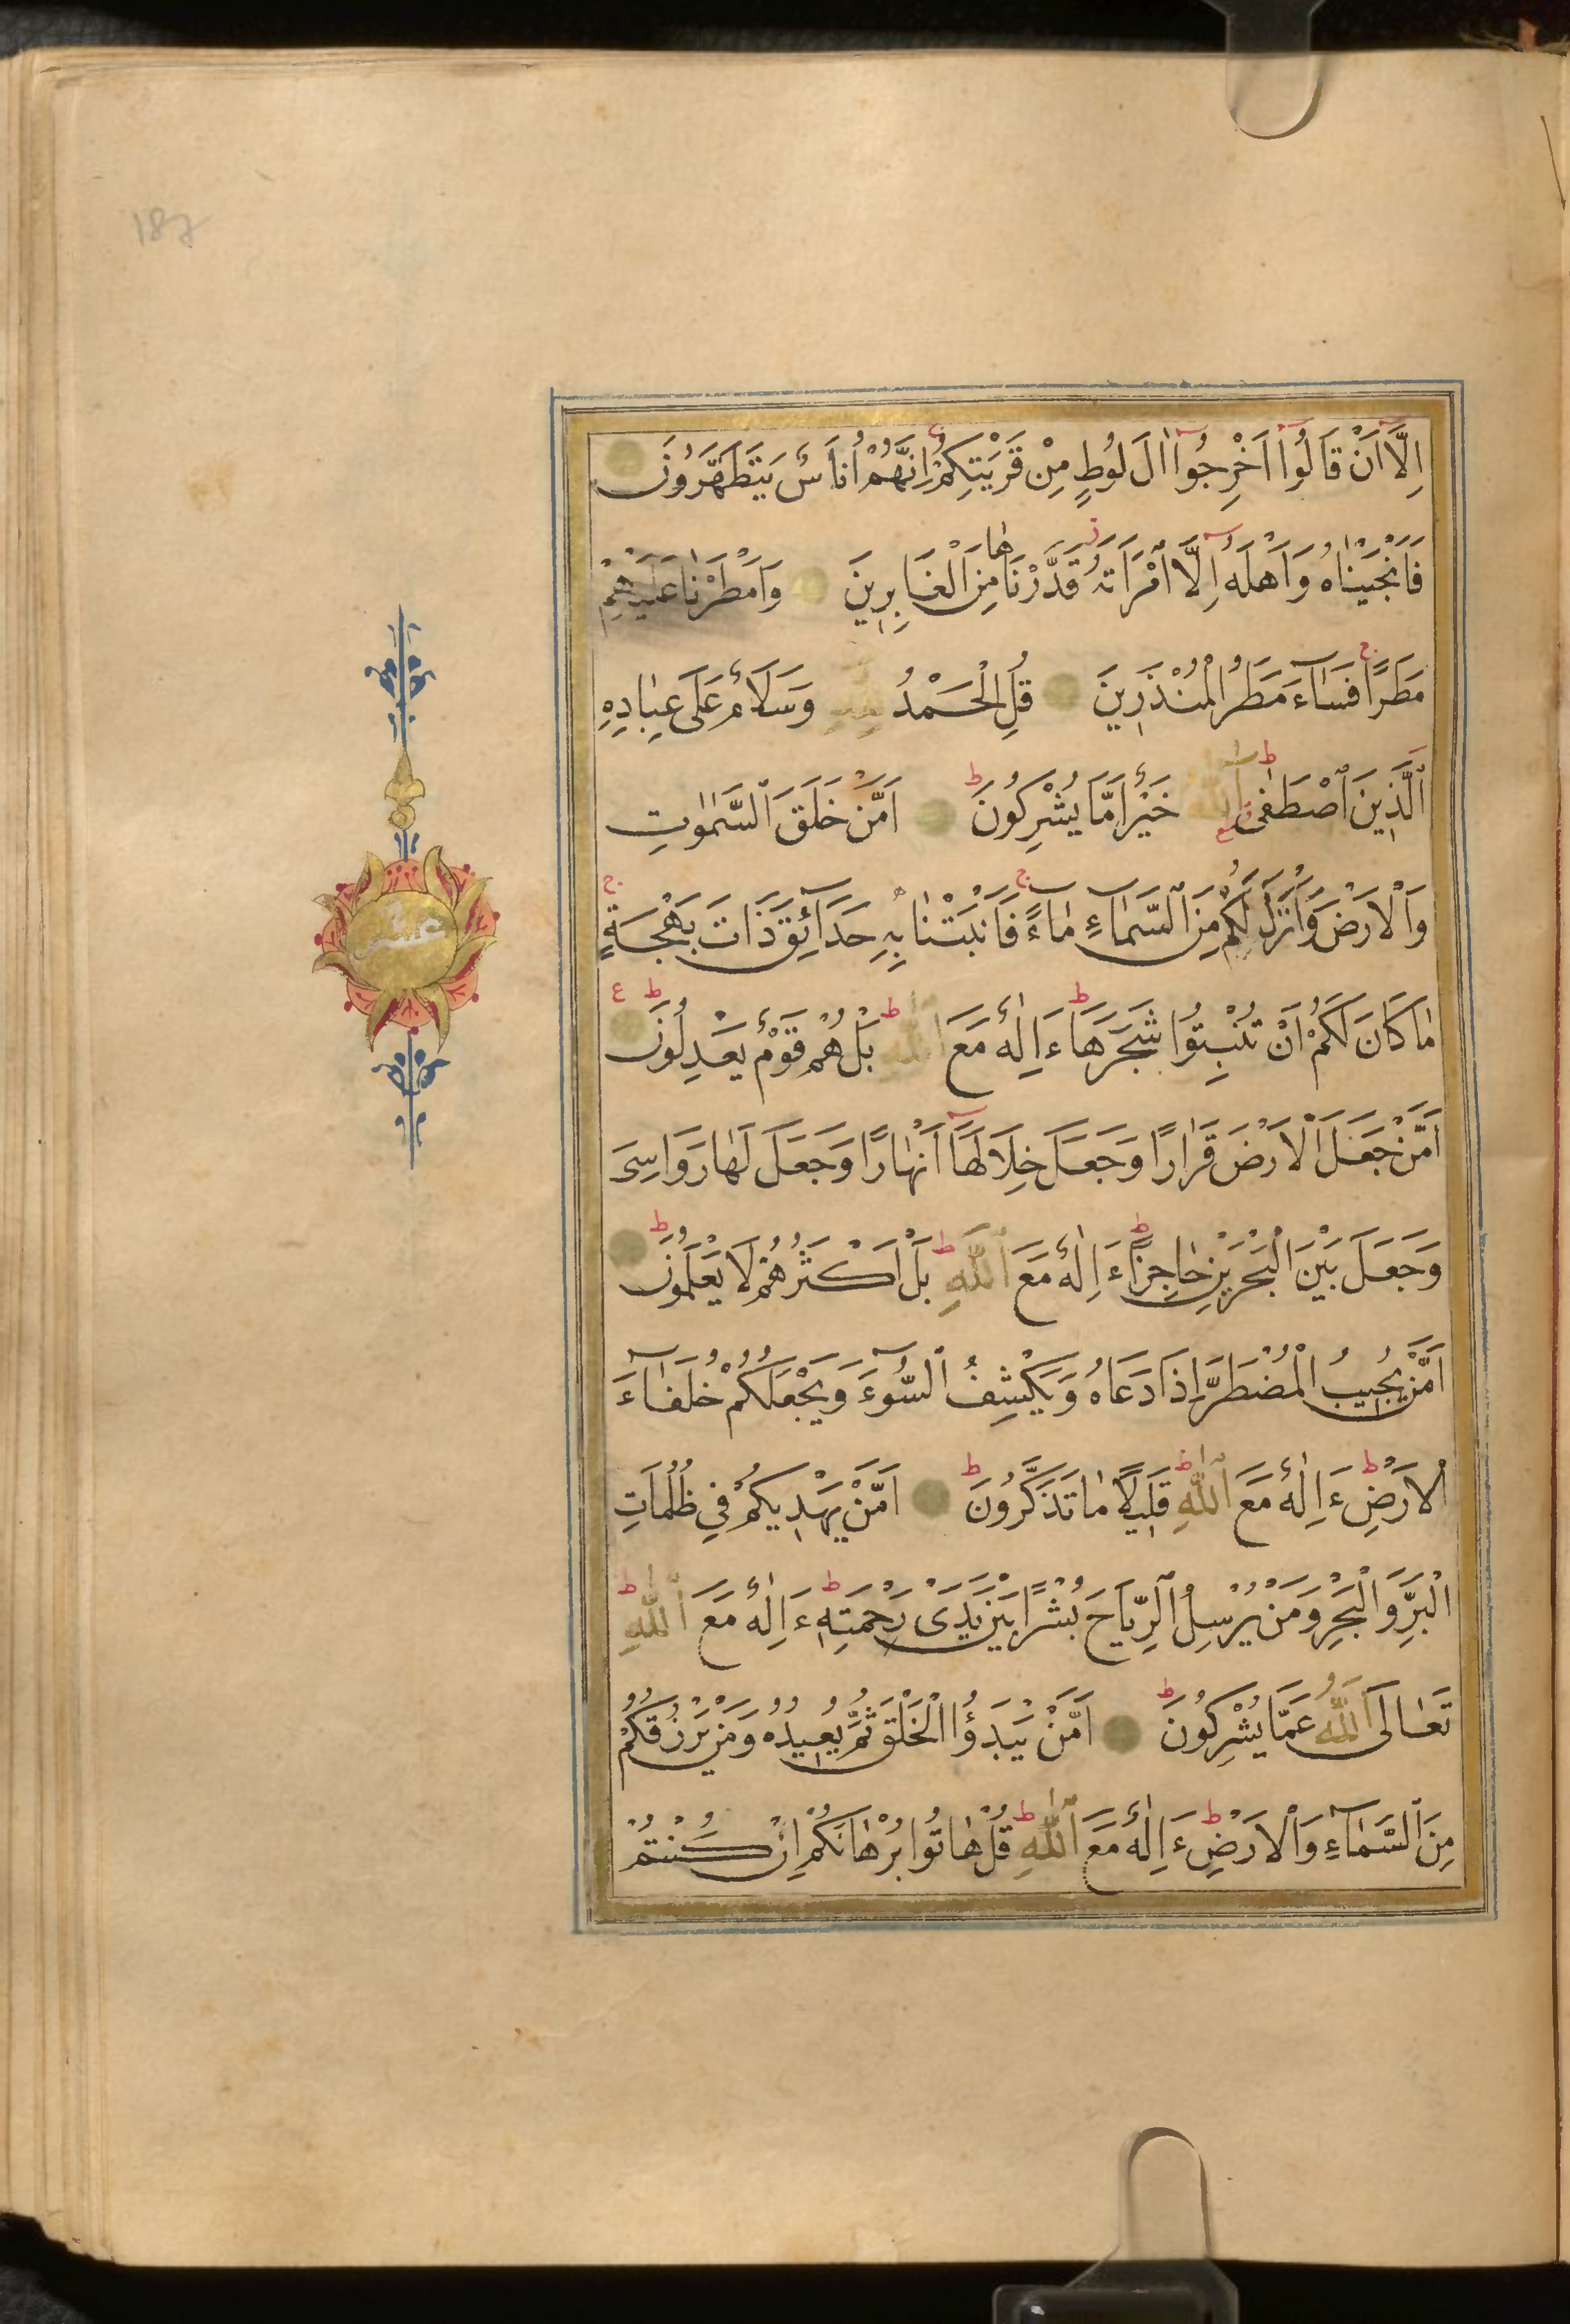 اِلَّآ اَنْ قَالُوٓا اَخْرِجُوٓا اٰلَ لُوطٍ مِنْ قَرْيَتِكُمْ اِنَّهُمْ اُنَاسٌ يَتَطَهَّرُونَ
فَاَنْجَيْنَاهُ وَاَهْلَهُٓ اِلَّا امْرَاَتَهُ قَدَّرْنَاهَا مِنَ الْغَابِرِينَ وَاَمْطَرْنَا عَلَيْهِمْ
مَطَرًا فَسَآءَ مَطَرُ الْمُنْذَرِينَ قُلِ الْحَمْدُ لِلّٰهِ وَسَلَامٌ عَلَى عِبَادِهِ
الَّذِينَ اصْطَفٰى آللّٰهُ خَيْرٌ اَمَّا يُشْرِكُونَ اَمَّنْ خَلَقَ السَّمٰوَاتِ
وَالْاَرْضَ وَاَنْزَلَ لَكُمْ مِنَ السَّمَآءِ مَآءً فَاَنْبَتْنَا بِهِ حَدَآئِقَ ذَاتَ بَهْجَةٍ
مَا كَانَ لَكُمْ اَنْ تُنْبِتُوا شَجَرَهَا ءَاِلٰهٌ مَعَ اللّٰهِ بَلْ هُمْ قَوْمٌ يَعْدِلُونَ
اَمَّنْ جَعَلَ الْاَرْضَ قَرَارًا وَجَعَلَ خِلَالَهَآ اَنْهَارًا وَجَعَلَ لَهَا رَوَاسِىَ
وَجَعَلَ بَيْنَ الْبَحْرَيْنِ حَاجِزًا ءَاِلٰهٌ مَعَ اللّٰهِ بَلْ اَكْثَرُهُمْ لَا يَعْلَمُونَ
اَمَّنْ يُجِيبُ الْمُضْطَرَّ اِذَا دَعَاهُ وَيَكْشِفُ السُّوٓءَ وَيَجْعَلُكُمْ خُلَفَآءَ
الْاَرْضِ ءَاِلٰهٌ مَعَ اللّٰهِ قَلِيلًا مَا تَذَكَّرُونَ اَمَّنْ يَهْدِيكُمْ فِي ظُلُمَاتِ
الْبَرِّ وَالْبَحْرِ وَمَنْ يُرْسِلُ الرِّيَاحَ بُشْرًا بَيْنَ يَدَىْ رَحْمَتِهِ ءَاِلٰهٌ مَعَ اللّٰهِ
تَعَالَى اللّٰهُ عَمَّا يُشْرِكُونَ اَمَّنْ يَبْدَؤُا الْخَلْقَ ثُمَّ يُعِيدُهُ وَمَنْ يَرْزُقُكُمْ
مِنَ السَّمَآءِ وَالْاَرْضِ ءَاِلٰهٌ مَعَ اللّٰهِ قُلْ هَاتُوا بُرْهَانَكُمْ اِنْ كُنْتُمْ
عشر
187